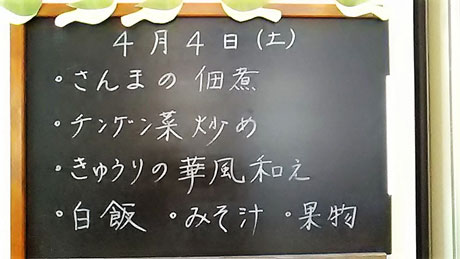 4月4日(土)
・さんまの佃煮
・チンゲン菜炒め
・きゅうりの華風和え
・白飯 ・みそ汁 ・果物